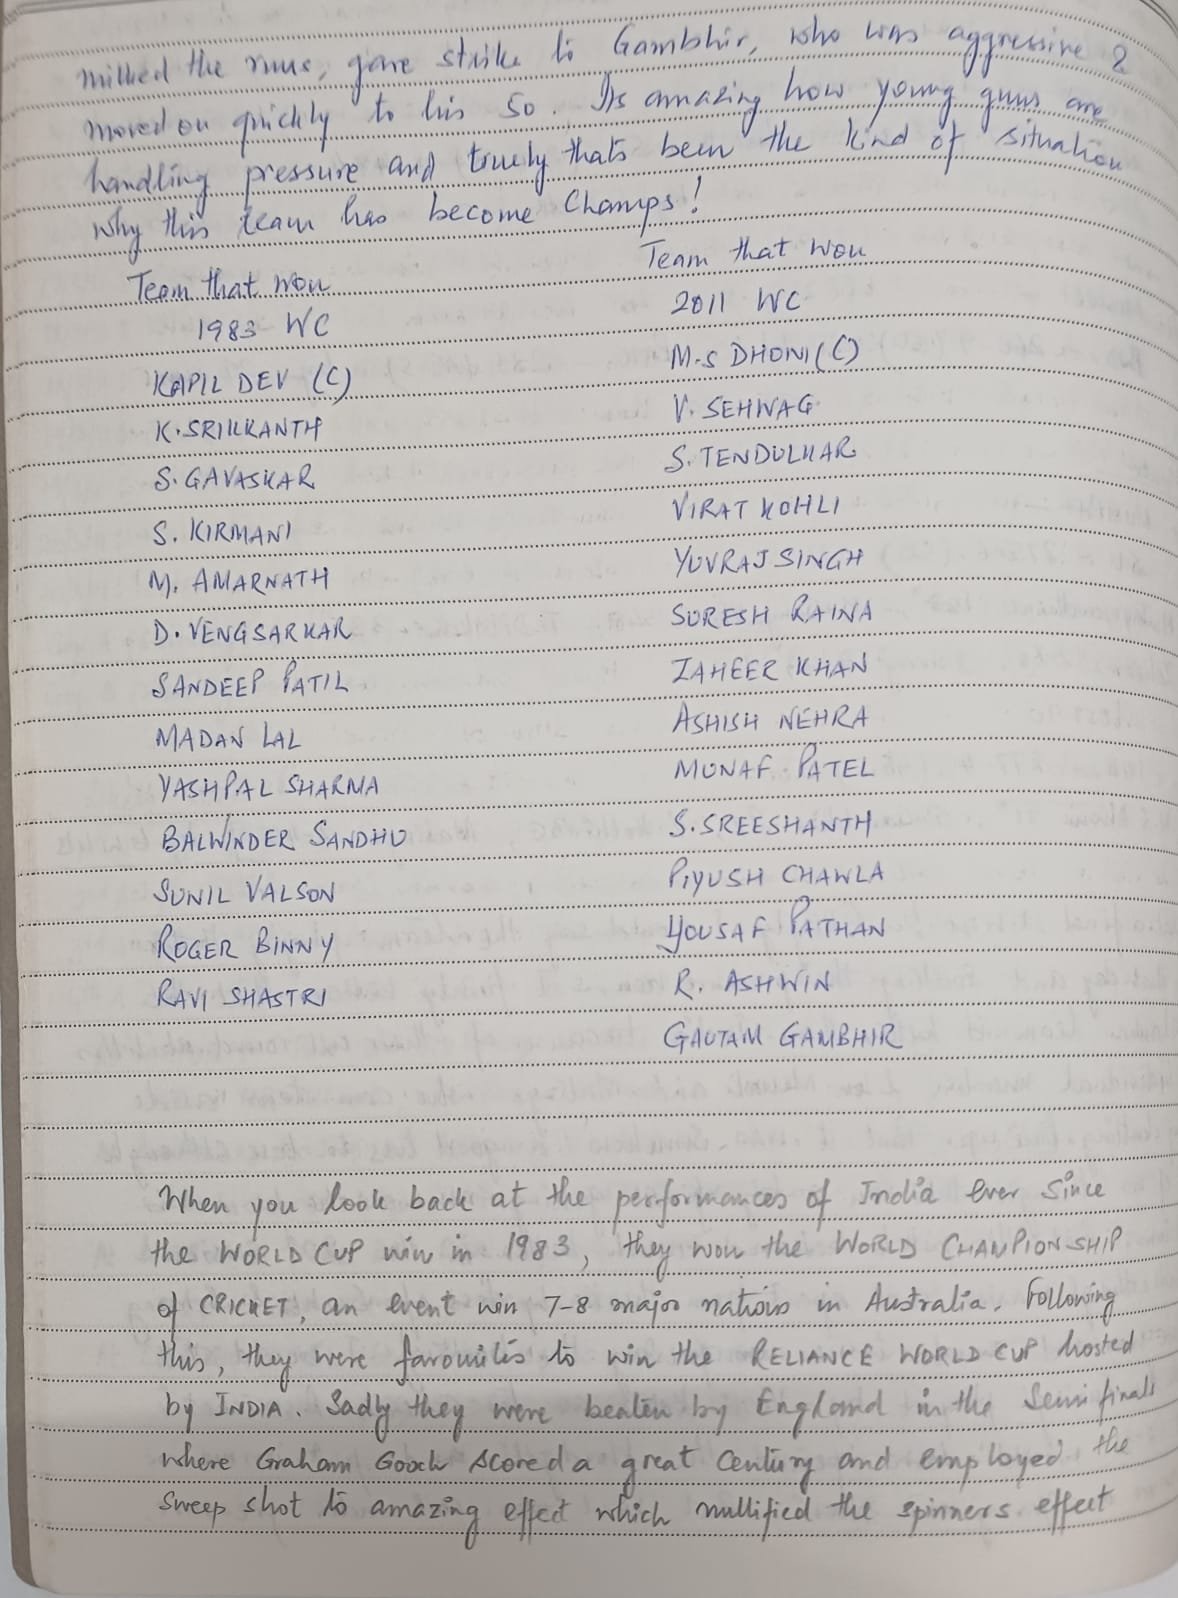 milked the runs, gave strike to Gambhir, who was aggressive &
moved on quickly to his 50. Its amazing how young guns are
handling pressure and truely thats been the kind of situation
why this team has become Champs!
Team that won
1983 WC
KAPIL DEV (C)
K. SRIKKANTH
S. GAVASKAR
S. KIRMANI
M. AMARNATH
D. VENGSARKAR
SANDEEP PATIL
MADAN LAL
YASHPAL SHARMA
BALWINDER SANDHU
SUNIL VALSON
ROGER BINNY
RAVI SHASTRI
Team that won
2011 WC
M.S DHONI (C)
V. SEHWAG
S. TENDULKAR
VIRAT KOHLI
YUVRAJ SINGH
SURESH RAINA
ZAHEER KHAN
ASHISH NEHRA
MUNAF PATEL
S. SREESHANTH
PIYUSH CHAWLA
YOUSAF PATHAN
R. ASHWIN
GAUTAM GAMBHIR
When you look back at the performances of India ever since
the WORLD CUP win in 1983, they won the WORLD CHAMPIONSHIP
of CRICKET, an event win 7-8 major nations in Australia. Following
this, they were favourites to win the RELIANCE WORLD CUP hosted
by INDIA. Sadly they were beaten by England in the Semi finals
where Graham Gooch scored a great Century and employed the
sweep shot to amazing effect which nullified the spinners effect